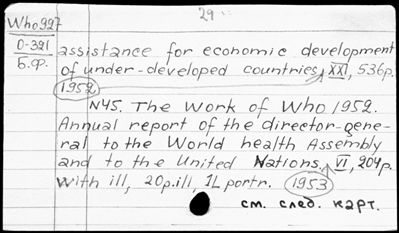 29
Who 927
0-321
Б.ф.
assistance for economic development
of under-developed countries, XXI, 536p.
1952
N45. The Work of Who 1952.
Annual report of the director-gene-
ral to the World health Assembly
and to the United Nations, VI, 204p.
with ill, 20p.ill, 1L portr. 1953
см. след. карт.